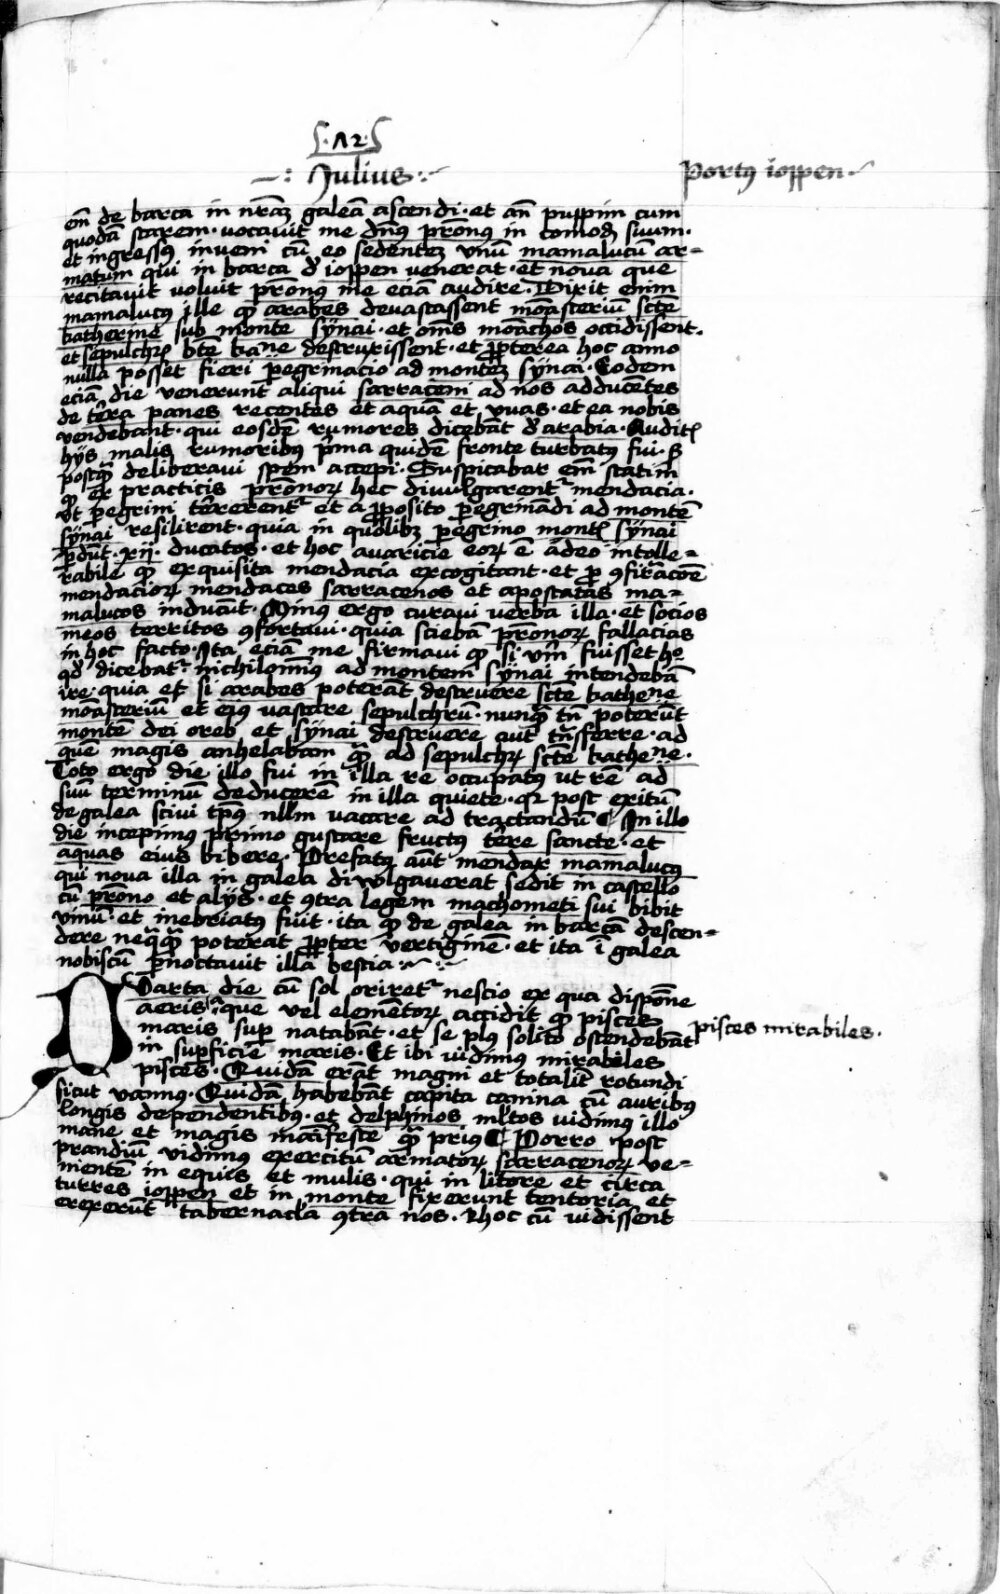 ·A2·
—: Julius :~
Portꝯ ioppen ·~
em̄ de barca in nr̄aꝫ galeā ascendi · et an̄ puppim cum
quodā starem · vocavit me dn̄ꝯ pr̄onꝯ in comodū suum ·
et ingressꝯ inveni cū eo sedenteꝫ vnū mamalucū ar=
matum qui in barca đ ioppen venerat · et nova que
recitavit voluit pr̄onꝯ me eciā audire · Dixit enim
mamalucꝯ ille ꝙ arabes devastassent monasteriū scte
katherine sub monte synai · et om̄s moāchos occidissent ·
et sepulchrū bt̄e katne destruxissent · et ꝓpterea hoc anno
nulla posset fieri ꝑegrinacio ad monteꝫ synai · Eodem
eciā die venerunt aliqui sarraceni ad nos adducētes
de tēra panes recentes et aquā et vuas · et ea nobis
vendebant · qui eosdē rumores dicebāt đ arabia · Auditꝭ
hys malis rumoribus pͥma quidē fronte turbatꝯ fui · sꝫ
postqͣ deliberavi spem accepi · Suspicabar em̄ statim
ꝙ ex practicis pr̄onoꝝ hec divulgarent᷑ mendacia ·
vt ꝑegrini tērerent᷑ et a ꝓposito ꝑegrinādi ad montē
synai resilirent · quia in quolibꝫ ꝑegrino montꝭ synai
ꝑdūt · xij · ducatos · et hoc avaricie eoꝝ ē adeo intolle=
rabile ꝙ exquisita mendacia excogitant · et ꝓ ꝯfirmacōe
mendacioꝝ mendaces sarracenos et apostatas ma=
malucos inducūt · Minꝯ ergo curavi verba illa · et socios
meos territos ꝯfortavi · quia sciebā pr̄onoꝝ fallacias
in hoc facto · Ita eciā me firmavi ꝙ si vm̄ fuisset hͦ
qđ dicebat᷑ · nichilominꝯ ad montem synai intendebā
ire · quia et si arabes poterāt destruere scte kathene
monasteriū et eiꝯ vastare sepulchrū · nunqͣ tn̄ poterūt
montē dei oreb et synai destruere aut tn̄sferre · ad
quē magis anhelabam qͣ ad sepulchꝝ scte kathene ·
Toto ergo die illo fui in illa re occupatꝯ ut rē ad
suū terminū deducerē in illa quiete · qꝛ post exitū
de galea scivi tp̄ꝯ nllm vacare ad tractandū ¶ In illo
die incepimꝯ primo gustare fructꝯ tēre sancte · et
aquas eius bibere · Prefatꝯ aūt mendax mamalucꝯ
qui nova illa in galea divulgaverat sedit in castello
cū pr̄ono et alys · et ꝯtra legem machometi sui bibit
vinū · et inebriatꝯ fuit · ita ꝙ de galea in barcā descen=
dere neqͣqͣ poterat ꝓpter vertiginē · et ita ī galea
nobiscū ꝑnoctavit illa bestia :~ :~
Quarta die cū sol oriret᷑ nescio ex qua dispōne
aeris que vel elementoꝝ accidit ꝙ pisces
maris suꝑ natabāt · et se plꝯ solito ostendebāt
pisces mirabiles ·
in suꝑficie maris · Et ibi vidimꝯ mirabiles
pisces · Quidā erāt magni et totalit᷑ rotundi
sicut vannꝯ · Quidā habebāt capita canina cū auribꝯ
longis dependentibꝯ · et delphinos ml̄tos vidimꝯ illo
mane et magis māifeste qͣ priꝯ ¶ Porro post
prandiū vidimꝯ exercitū armatoꝝ sarracenoꝝ ve=
nientē in equis et mulis · qui in litore et circa
turres ioppen et in monte fixerunt tentoria et
erexerūt tabernacl̄a ꝯtra nos · Rhoc cū vidissent